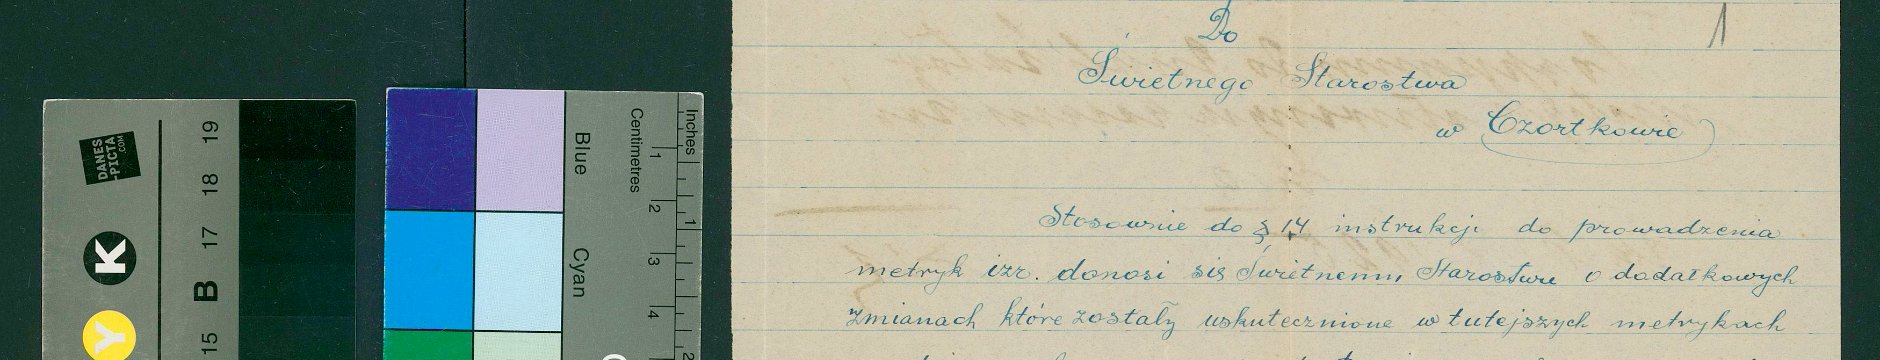 1
Do
Świetnego Starostwa
w Czortkowie
Stosownie do § 14 instrukcji do prowadzenia
metryk izr. donosi się Świetnemu Starostwu o dodatkowych
zmianach które zostały uskutecznione w tutejszych metrykach
DANES
-PICTA
.COM
19
18
17
B
15
K
Y
Blue
Cyan
Centimetres
Inches
1
2
3
4
1
2